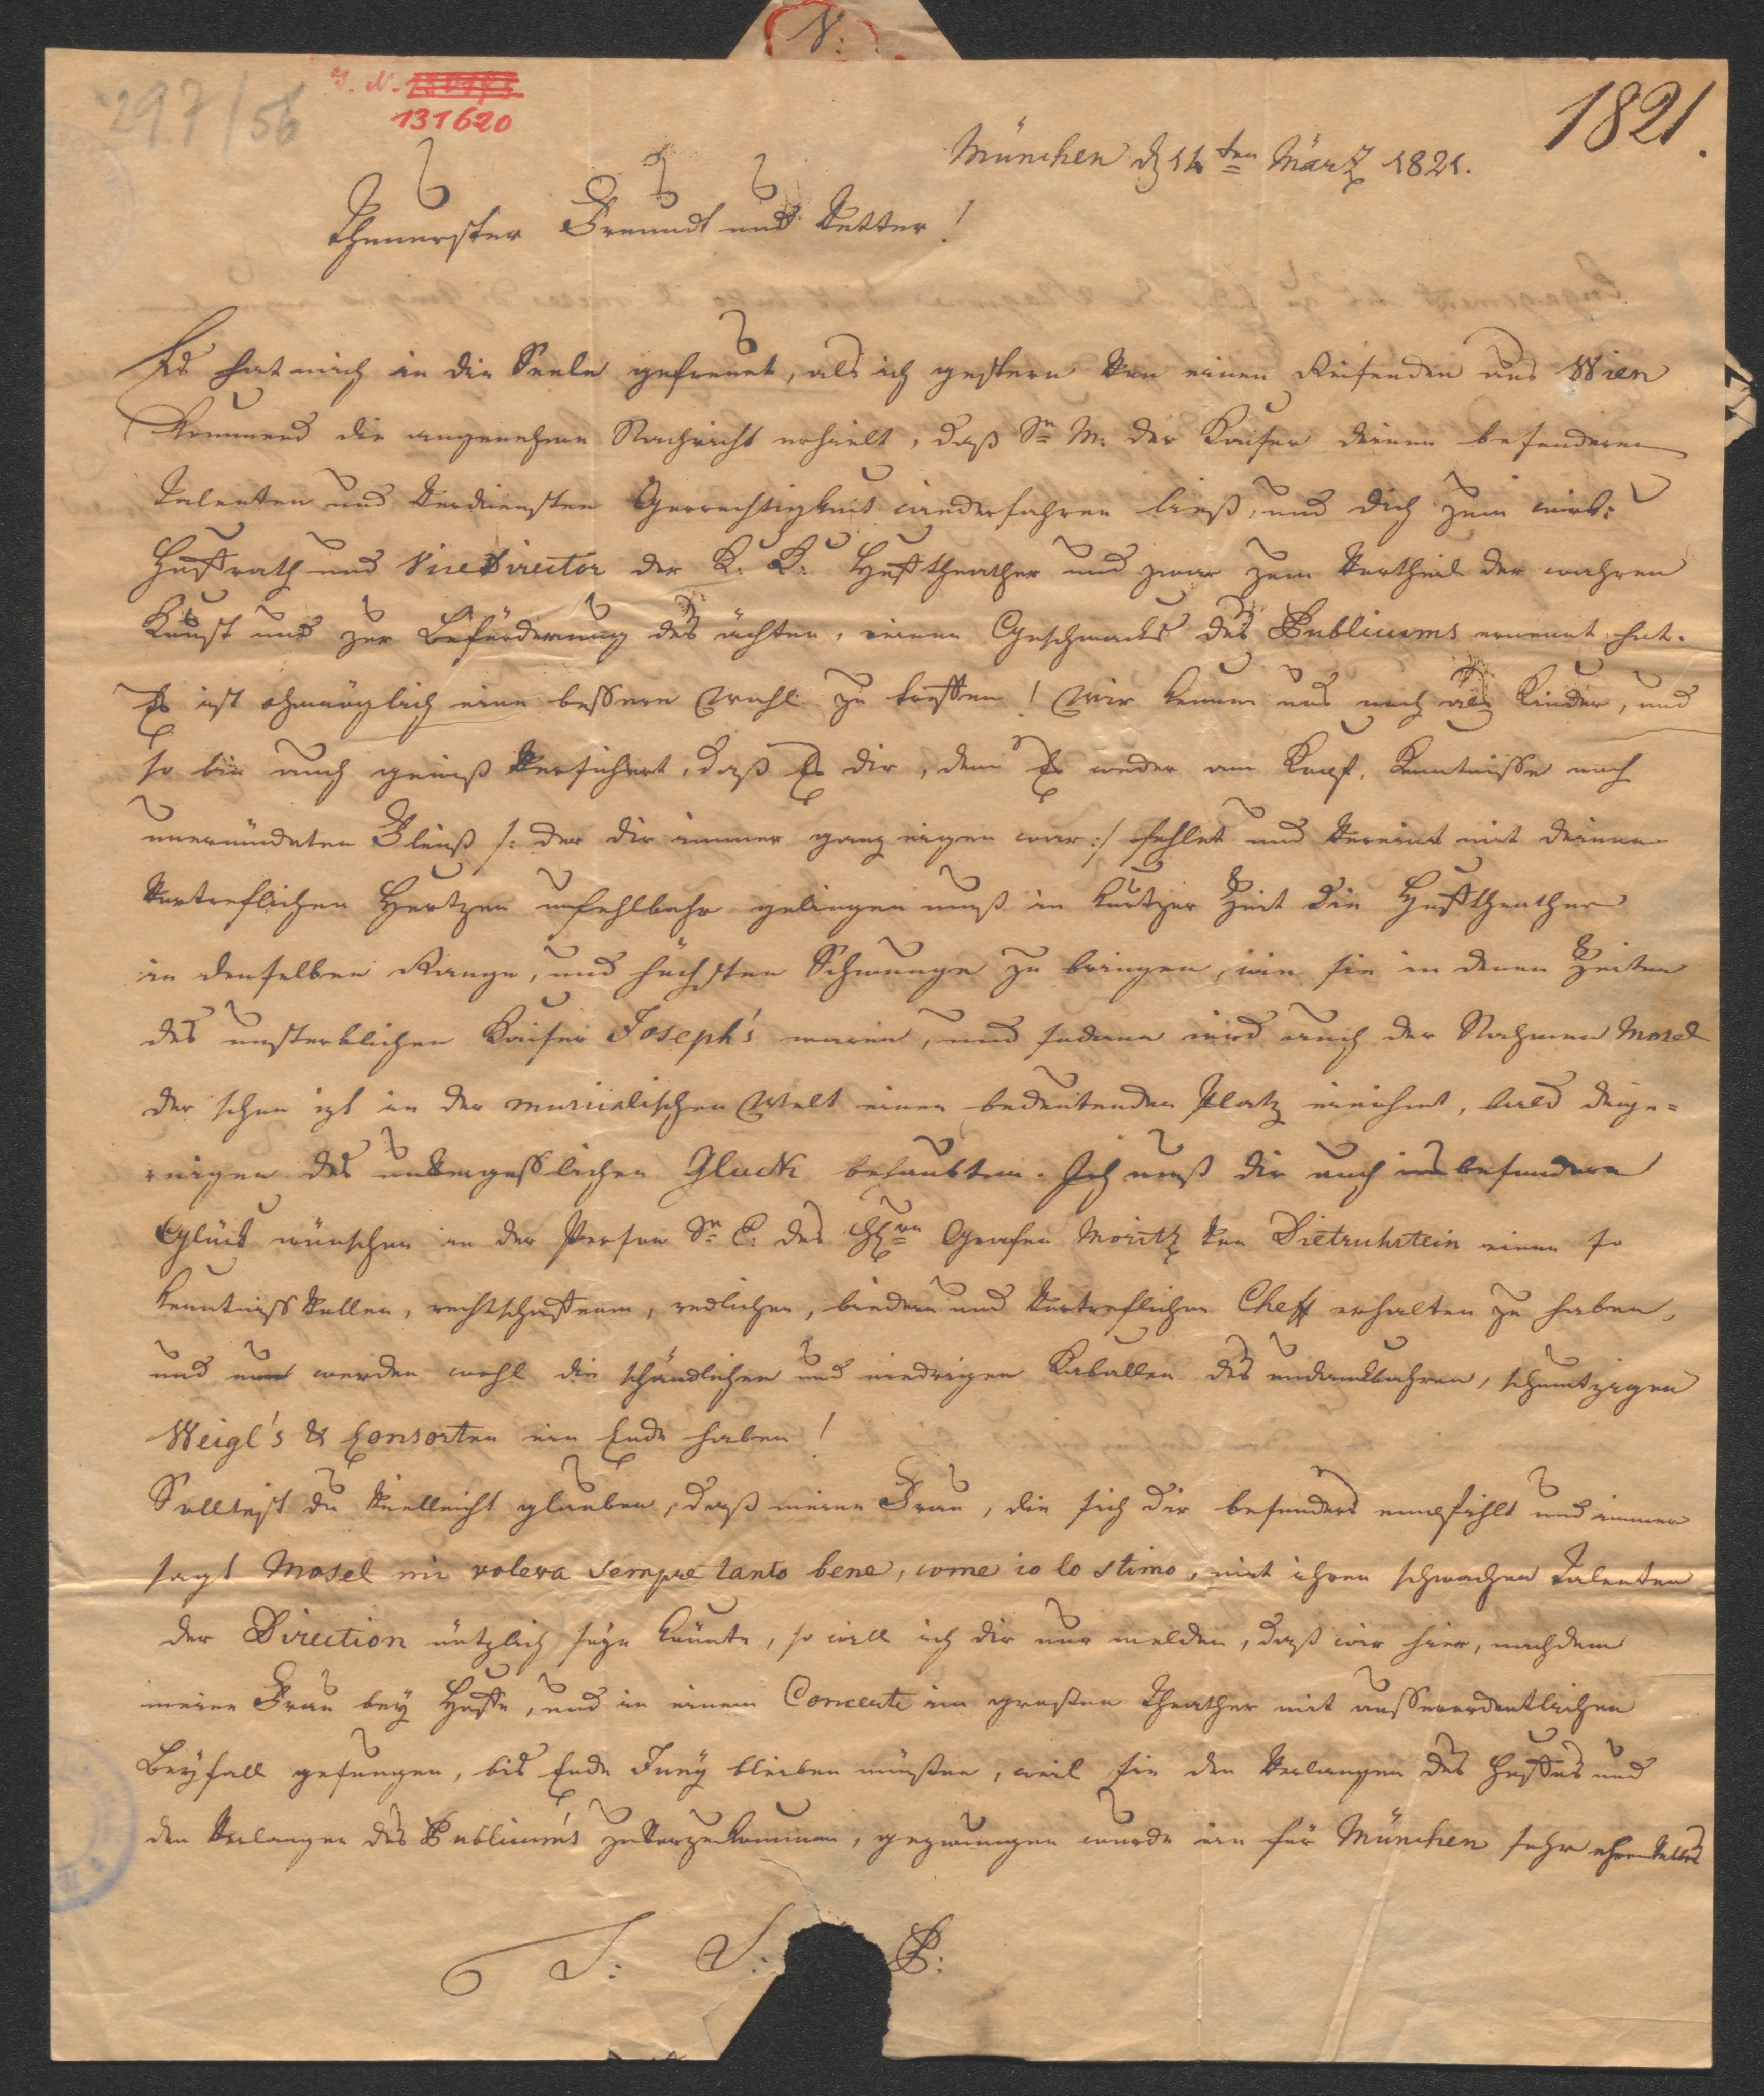 V:
297/56
I. N.
131620
1821.
München d 14ten März 1821.
Theuerster Freund und Vetter!
Es hat mich in die Seele gefreuet, als ich gestern von einen Reisenden aus Wien
kommend die angenehme Nachricht erhielt, daß Sr M: der Kaiser deinen besonderen
Talenten und Verdiensten Gerechtigkeit wiederfahren ließ, und dich zum wirk:
Hoffrath und Vice Director der K: K: Hoftheather und zwar zum Vortheil der wahren
Kunst und zur Beförderung des ächten, reinen Geschmacks des Publicums ernennt hat.
Es ist ohmöglich eine bessere Wahl zu treffen! Wir kennen uns noch als Kinder, und
so bin auch gewiß versichert, daß Es dir, dem Es weder am Kopf, Kenntnisse noch
unermüdeten Fleiß /: der dir immer ganz eigen war :/ fehlet und vereint mit deinen
vortreflichen Hertzen unfehlbahr gelingen muß in kurtzer Zeit die Hoftheather
in denselben Range, und höchsten Schwunge zu bringen, wie sie in denen Zeiten
des unsterblichen Kaiser Joseph's waren, und sodann wird auch der Nahmen Mosel
der schon izt in der musicalischen Welt einen bedeutenden Platz einihmt, bald denje=
nigen des unvergesslichen Gluck behaubten. Ich muß dir auch ins besondere
Glück wünschen in der Person Sr E: des Grafen Moritz von Dietrichstein einen so
Kenntniss vollen, rechtschaffenen, redlichen, biedern und vortreflichen Cheff erhalten zu haben,
und nun werden wohl die schändlichen und niedrigen Kaballen des undankbahren, schmutzigen
Weigl's & Consorten ein Ende haben!
Solltest du vielleicht glauben, daß meine Frau, die sich dir besonders empfiehlt und immer
sagt Mosel mi voleva sempre tanto bene, come io lo stimo, mit ihren schwachen Talenten
der Direction nützlich seyn könnte, so will ich dir nur melden, daß wir hier, nachdem
meine Frau bey Hoffe, und in einem Concerte im großen Theather mit ausserordentlichen
Beyfall gesungen, bis Ende Juny bleiben müßen, weil sie den Verlangen des Hoffes und
den Verlangen des Publicum's zuvorzukommen, gezwungen wurde ein für München sehr ehrenvolles
T: S: P: